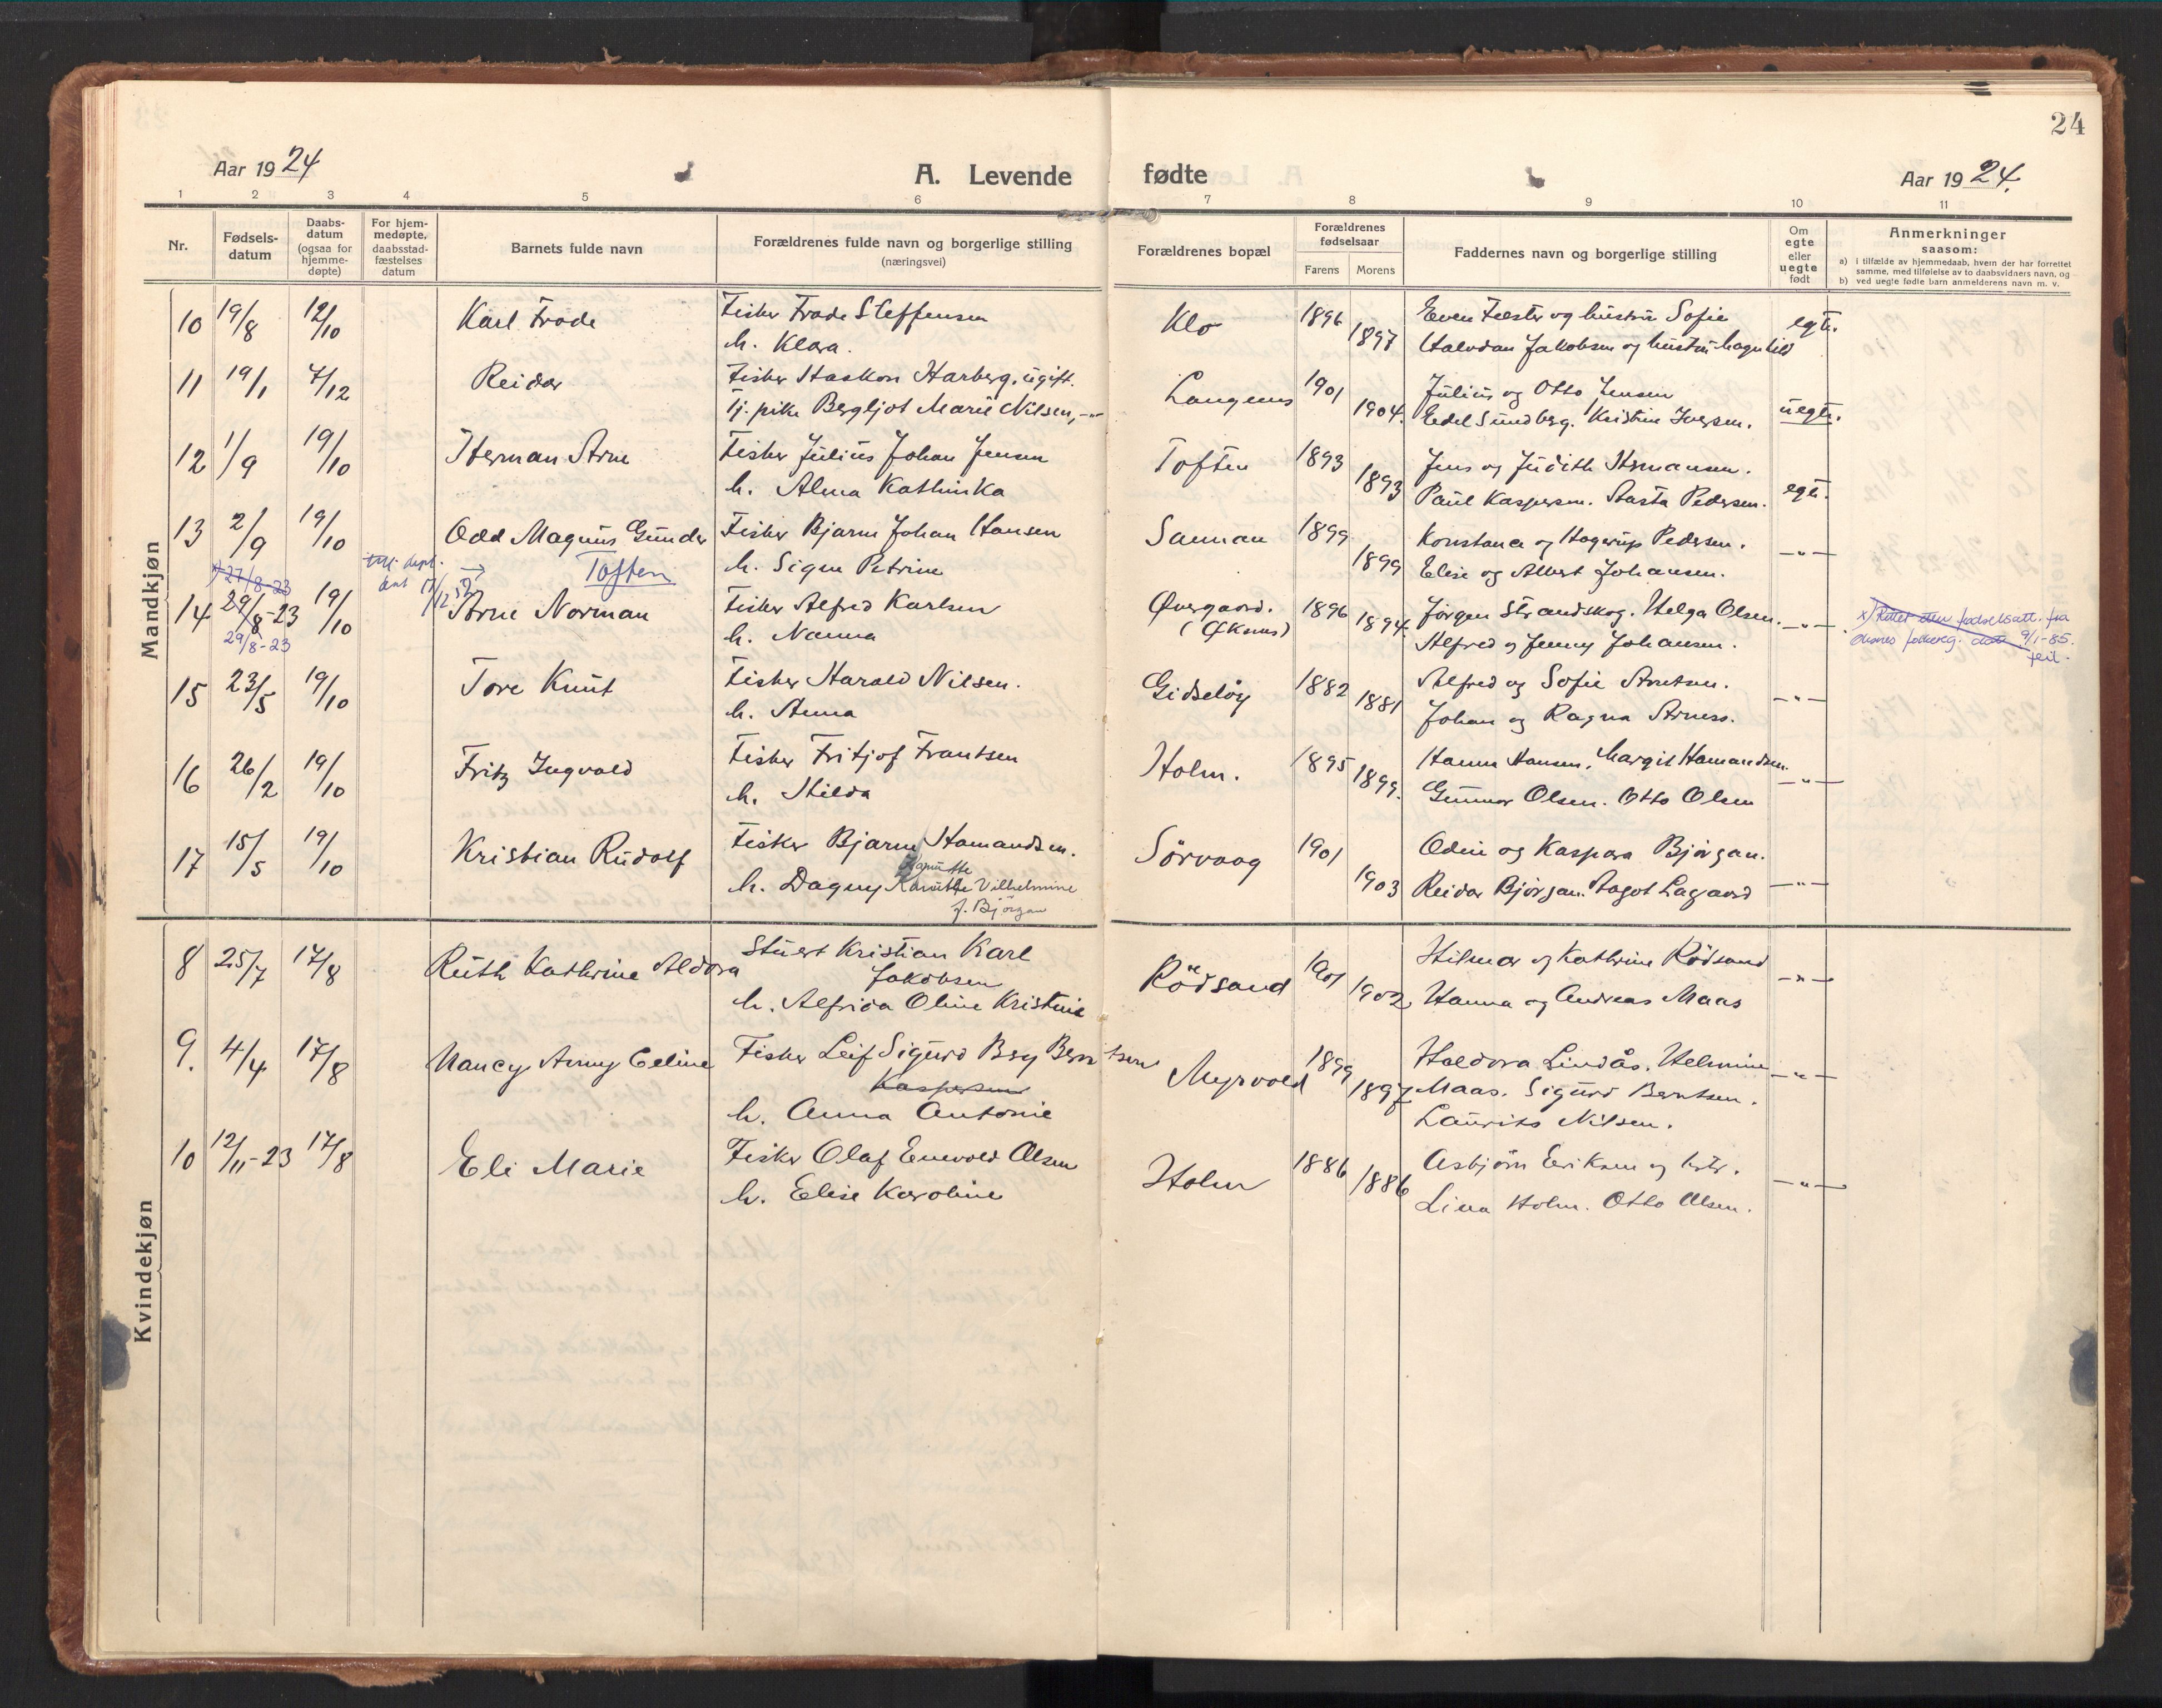 24
Aar 1924
A. Levende fødte
Aar 1924.
1 2 3 4 5 6 7 8 9 10 11
Nr.
Fødsels-datum
Daabs-datum (ogsaa for hjemme-døpte)
For hjem-medøpte, daabsstad-fæstelses datum
Barnets fulde navn
Forældrenes fulde navn og borgerlige stilling (næringsvei)
Forældrenes bopæl
Forældrenes fødselsaar
Farens Morens
Faddernes navn og borgerlige stilling
Om egte eller uegte født
Anmerkninger
saasom:
a) i tilfælde av hjemmedaab, hvem der har forrettet samme, med tilføielse av to daabsvidners navn, og
b) ved uegte fødte barn anmelderens navn m. v.
Mandkjøn
10 19/8 12/10 Karl Frode Fisker Frode Steffensen Klo 1896 Even Fæster og hustru Sofie egte.
h. Klara. 1897 Halvdan Jakobsen og hustru Magnhild
11 19/1 7/12 Reidar Fisker Haakon Harberg, ugift. Langenes 1901 Julius og Otto Jensen
tj. pike Bergljot Marie Nilsen, -"- 1904. Edel Sundberg. Kristine Iversen. uegte.
12 1/9 19/10 Herman Arne Fisker Julius Johan Jensen Toften 1893 Jens og Judith Hermansen.
h. Alma Kathinka 1893 Paul Kaspersen. Aasta Pedersen. egte.
13 2/9 19/10 Odd Magnus Gunder Fisker Bjarne Johan Hansen Sannan 1899 Konstance og Hagerup Pedersen. -"-
Toften h. Signe Petrine 1899 Elise og Albert Johansen.
x) 27/8-23
14 29/8-23 19/10 Arne Norman Fisker Alfred Karlsen Øvergaard. 1896 Jørgen Strandskog. Helga Olsen. -"- x) Rettet etter fødselsatt. fra
29/8-23 h. Nanna (Øksnes) 1894 Alfred og Jenny Johansen. Øksnes folkereg. dat. 9/1-85.
feil.
15 23/5 19/10 Tore Knut Fisker Harald Nilsen. Gidsløy 1882 Alfred og Sofie Arntsen. -"-
h. Anna 1881 Johan og Ragna Arness.
16 26/2 19/10 Fritz Ingvald Fisker Fritjof Frantsen Holm. 1895 Hanna Hansen. Margit Hamandsen. -"-
h. Hilda 1899. Gunnar Olsen. Otto Olsen
17 15/5 19/10 Kristian Rudolf Fisker Bjarne Hamandsen. Sörvaag 1901 Odin og Kaspara Björgan.
h. Dagny Kanutte Vilhelmine 1903 Reidar Björgan. Aagot Lagaard -"-
f. Björgan
Kvindekjøn
8 25/7 17/8 Ruth Kathrine Aldora Stuert Kristian Karl Rödsand 1901 Hilmar og Kathrine Rödsand -"-
Jakobsen
h. Alfrida Oline Kristine 1902 Hanna og Andreas Maas
9. 4/4 17/8 Nancy Anny Celine Fisker Leif Sigurd Berg Berntsen Myrvold 1899 Haldora Lindås. Helmine -"-
Kaspersen 1897 Maas. Sigurd Berntsen.
h. Anna Antonie Laurits Nilsen.
10 12/11-23 17/8 Eli Marie Fisker Olaf Enevold Olsen Holm 1886 Asbjörn Eriksen og hstr. -"-
h. Elise Karoline 1886 Lina Holm. Otto Olsen.